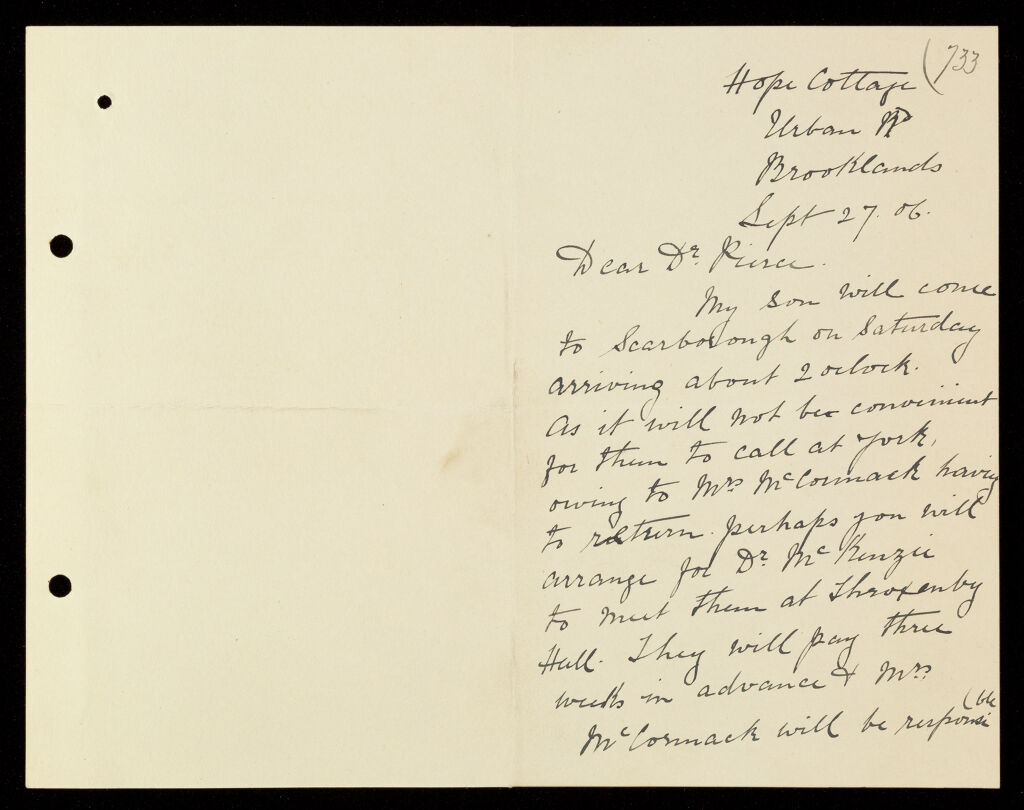 (733
Hope Cottage
Urban Rd
Brooklands
Sept 27. 06.
Dear Dr. Pierce.
My son will come
to Scarborough on Saturday
arriving about 2 oclock.
As it will not be convenient
for them to call at York,
owing to Mrs McCormack having
to return. perhaps you will
arrange for Dr. McKenzie
to meet them at Throxenby
Hall. They will pay three
weeks in advance & Mrs
McCormack will be responsi
(ble